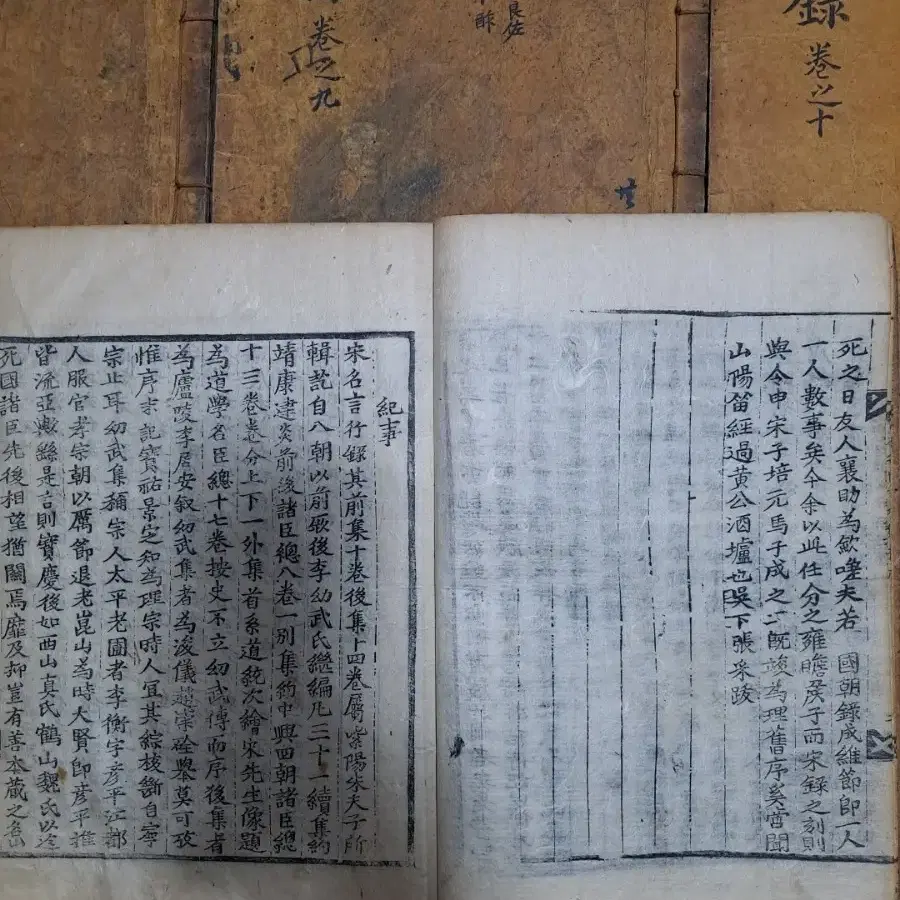 卷之九
良佐
錄 卷之十
死之日友人襄助為歛嗟夫若 國朝錄成維節即一人
一人數事矣今余以此任分之雍瞻庚子而宋錄之刻則
與令申宋子培元馬子成之一既竣為理舊序奚啻聞
山陽笛經過黃公酒壚也吳下張采跋
紀事
宋名言行錄其前集十卷後集十四卷屬紫陽朱夫子所
輯訖自八朝以前厥後李幼武氏繼編凡三十一續集約
靖康建炎前後諸臣總八卷一別集約中興四朝諸臣總
十三卷卷分上下一外集首系道統次繪宋先生像題
為道學名臣總十七卷按史不立幼武傳而序後集者
為廬陵李居安叙幼武集者為浚儀趙崇硂舉莫可攷
惟序末記寶祐景定知為理宗時人宜其綜核斷自寧
宗止耳幼武集稱宗人太平老圃者李衡字彥平江都
人服官孝宗朝以厲節退老崑山為時大賢即彥平推
皆流亞歟繇是言則寶慶後如西山真氏鶴山魏氏以迄
死國諸臣先後相望猶闕焉靡及抑豈有善本藏之